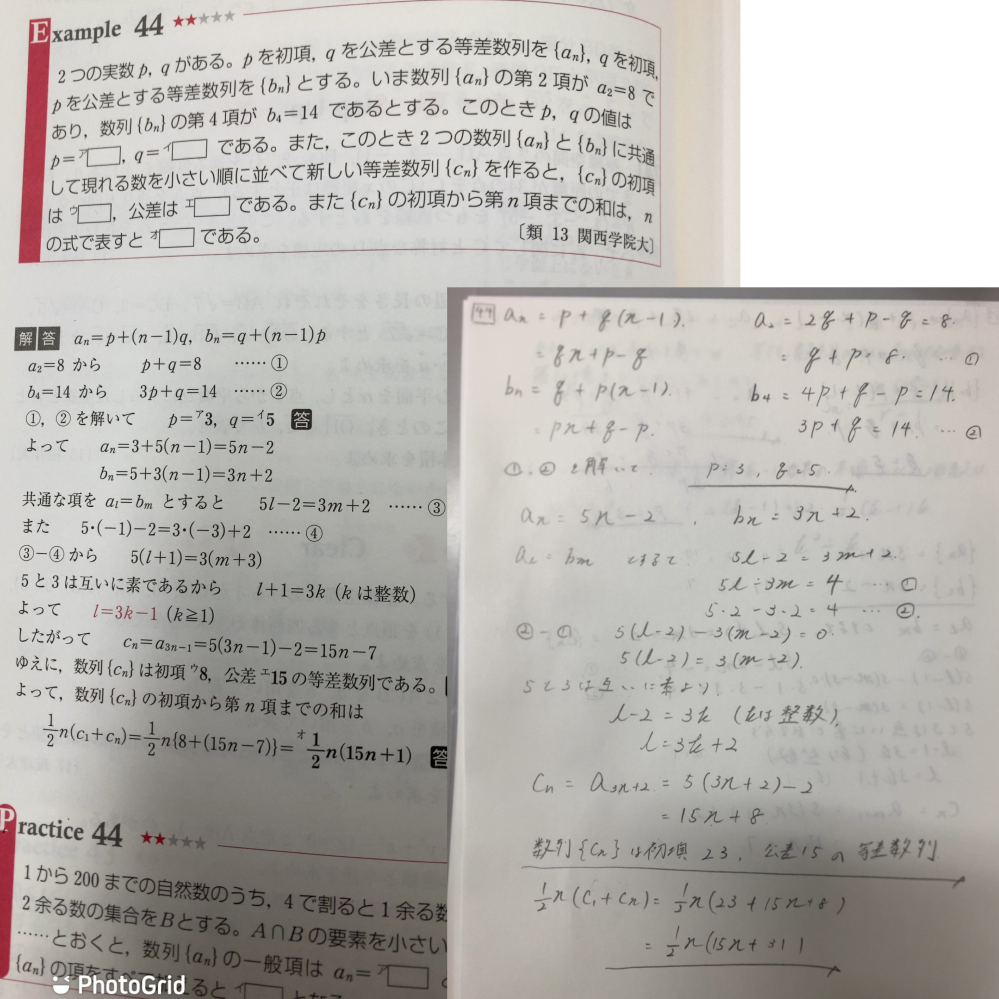 Example 44 ★★★★★
2つの実数p, qがある。pを初項, qを公差とする等差数列を{aₙ}, qを初項,
pを公差とする等差数列を{bₙ}とする。いま数列{aₙ}の第2項が a₂=8 で
あり, 数列{bₙ}の第4項が b₄=14 であるとする。このときp, qの値は
p=ア□, q=イ□ である。また, このとき2つの数列{aₙ}と{bₙ}に共通
して現れる数を小さい順に並べて新しい等差数列{cₙ}を作ると, {cₙ}の初項
は ウ□, 公差は エ□ である。また{cₙ}の初項から第n項までの和は, n
の式で表すと オ□ である。
〔類 13 関西学院大〕
解答 aₙ=p+(n-1)q, bₙ=q+(n-1)p
a₂=8 から p+q=8 ……①
b₄=14 から 3p+q=14 ……②
①, ②を解いて p=ア3, q=イ5 答
よって aₙ=3+5(n-1)=5n-2
bₙ=5+3(n-1)=3n+2
共通な項を aₗ=bₘ とすると 5l-2=3m+2 ……③
また 5・(-1)-2=3・(-3)+2 ……④
③-④から 5(l+1)=3(m+3)
5と3は互いに素であるから l+1=3k (kは整数)
よって l=3k-1 (k≧1)
したがって cₙ=a₃ₙ₋₁=5(3n-1)-2=15n-7
ゆえに, 数列{cₙ}は初項 ウ8, 公差 エ15 の等差数列である。
よって, 数列{cₙ}の初項から第n項までの和は
1/2 n(c₁+cₙ)=1/2 n{8+(15n-7)}=オ 1/2 n(15n+1) 答
Practice 44 ★★★★★
1から200までの自然数のうち, 4で割ると1余る数
2余る数の集合をBとする。A∩Bの要素を小さい
……とおくと, 数列{aₙ}の一般項は aₙ=ア□
{aₙ}の項をす
PhotoGrid
44 aₙ = p + q(n-1). a₂ = 2q + p - q = 8.
= qn + p - q = q + p = 8. … ①
bₙ = q + p(n-1). b₄ = 4p + q - p = 14.
= pn + q - p. 3p + q = 14. … ②
①, ②を解いて p = 3, q = 5.
aₙ = 5n - 2. bₙ = 3n + 2.
aₗ = bₘ とすると 5l - 2 = 3m + 2.
5l - 3m = 4 … ①
5・2 - 3・2 = 4 … ②.
②-① 5(l-2) - 3(m-2) = 0.
5(l-2) = 3(m-2).
5と3は互いに素より
l - 2 = 3k (kは整数)
l = 3k + 2
Cₙ = a₃ₙ₊₂ = 5(3n+2) - 2
= 15n + 8
数列{Cₙ}は初項 23, 公差15の等差数列.
1/2 n(C₁ + Cₙ) = 1/2 n(23 + 15n + 8)
= 1/2 n(15n + 31)